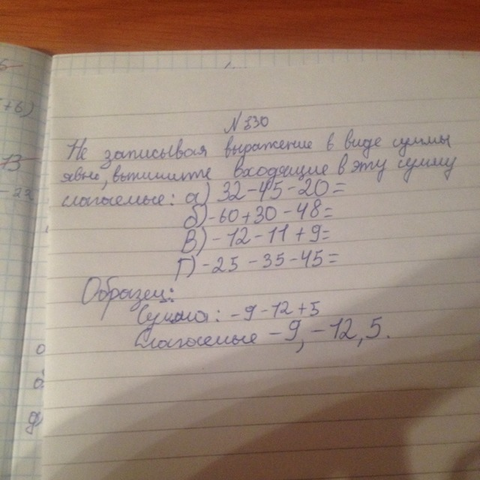 N 330
Не записывая выражение в виде суммы
явно, выпишите входящие в эту сумму
слагаемые: а) 32-45-20=
б) -60+30-48=
В) -12-11+9=
Г) -25-35-45=
Образец:
Сумма: -9-12+5
Слагаемые -9, -12, 5.